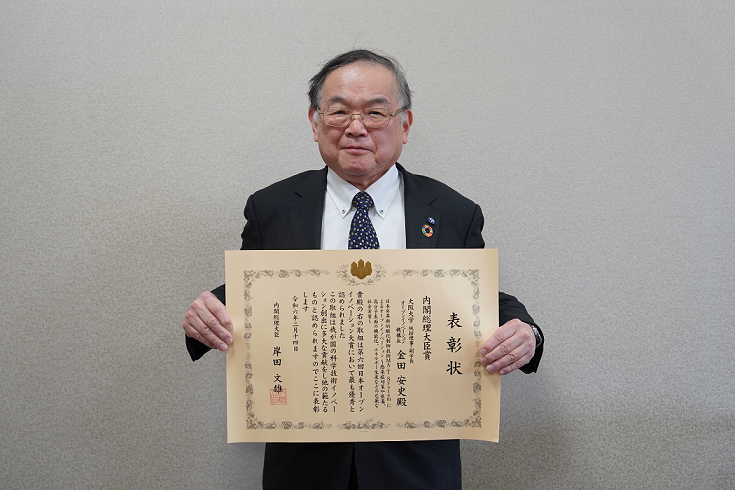 表彰状
内閣総理大臣賞
大阪大学 統括理事・副学長
オープンイノベーション機構長
金田 安史殿
貴殿の右の取組は第六回日本オープン
イノベーション大賞において最も優秀と
認められました
この取組は我が国の科学技術イノベー
ション創出に多大な貢献をし他の範たる
ものと認められますのでここに表彰
します
令和六年二月十四日
内閣総理大臣 岸田 文雄